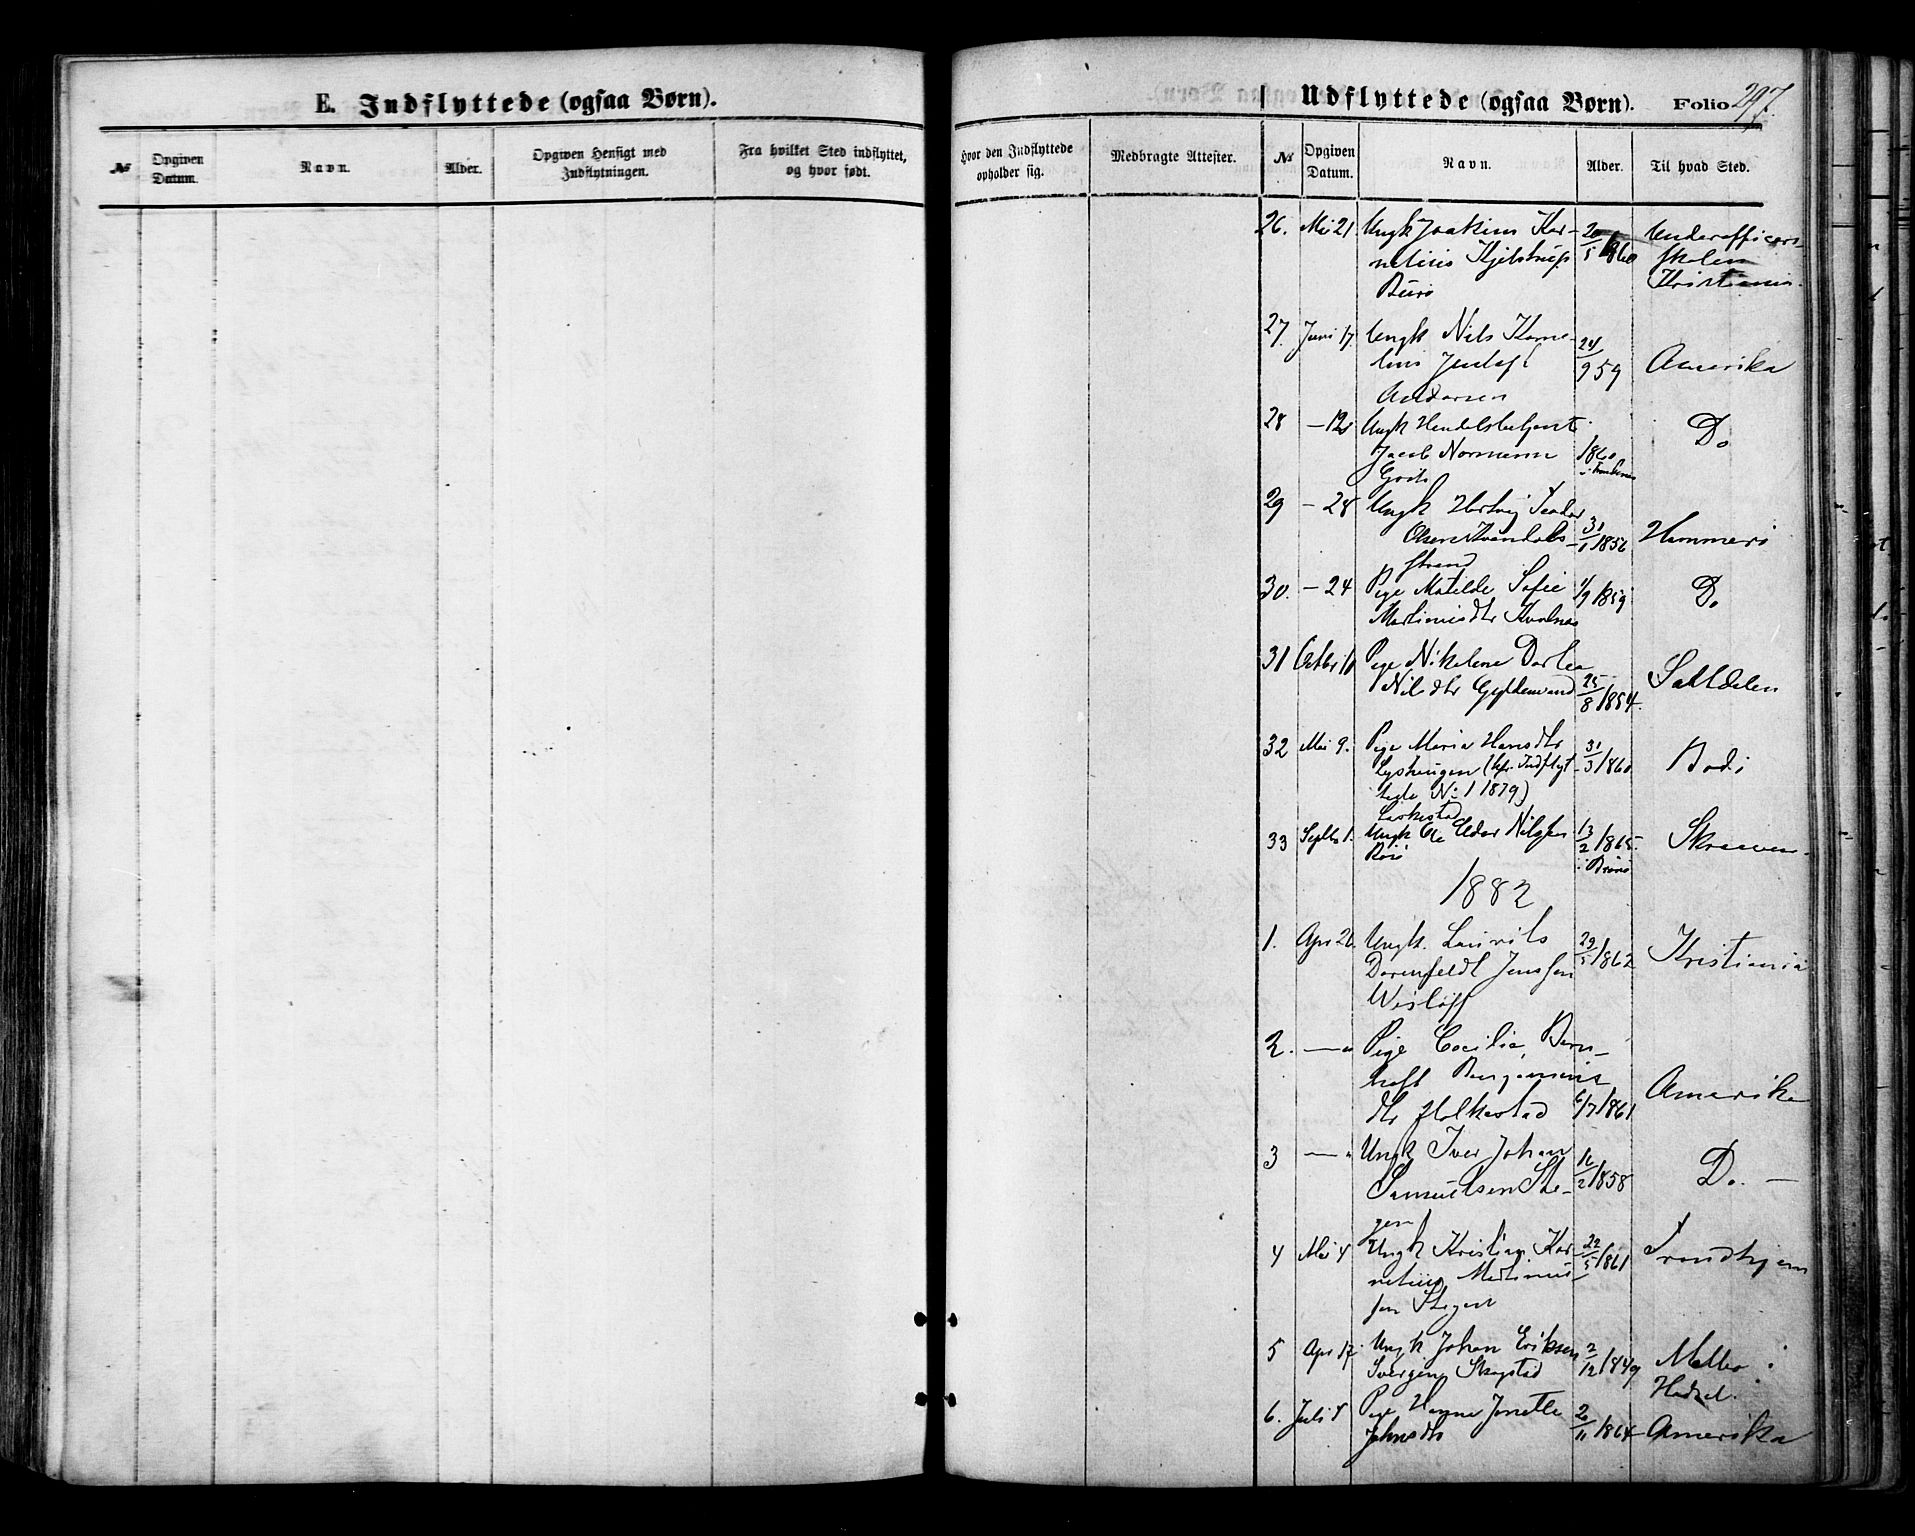 E. Indflyttede (ogsaa Børn).
№ Opgiven Datum. Navn. Alder. Opgiven Hensigt med Indflytningen. Fra hvilket Sted indflyttet, og hvor født.
Udflyttede (ogsaa Børn). Folio 297.
Hvor den Indflyttede opholder sig. Medbragte Attester. № Opgiven Datum. Navn. Alder. Til hvad Sted.
26. Mai 21 Ungk Joakim Kor- 20/5 1860 Underofficers-
nelius Kjelstrup skolen
Kristiania.
27. Juni 17. Ungk Nils Korne- 24/9 59 Amerika
lius
Andersen
28 — Ungk Handelsbetjent 1860 Do
Jacob Normann
29 — 28 Ungk Hertvig Teodor
Olsen 31/1 1856 Hammerø
strand
30. — 24 Pige Matilde Sofie 1/9 1859 Do
Martinusdtr Kvalnes
31 Octbr Pige Nikoline Dortea
Nilsdtr Gyldenvand 25/8 1854. Saltdalen
32 Mai 9. Pige Maria Hansdtr 31/3 1860 Bodø
(kfr. Indflyt
tede No 1 1879)
33 Septbr 1. Ungk Ole Edor 13/2 1865 Skraaven
1882
1. Apr 26. Ungk. Laurits 29/5 1862 Kristiania
Dorenfeldt Jenssen
Wisløff
2. — " Pige Cecilia Bern-
hoft Benjamins
dtr Holkestad 6/7 1861 Amerika
3 — " Ungk Iver Johan 16/2 1858 Do. —
Samuelsen Ste-
gen
4 Mai 4 Ungk Kristian Kor- 22/5 1861 Trondhjem
nelius Martinus-
sen Stegen
5 Apr 17. Ungk Johan Eriksen 2/12 1849 Melbo i
Skogstad Hadsel.
6. Juli 8 Pige Hanna Jonette 20/11 1864 Amerika
Johnsdtr